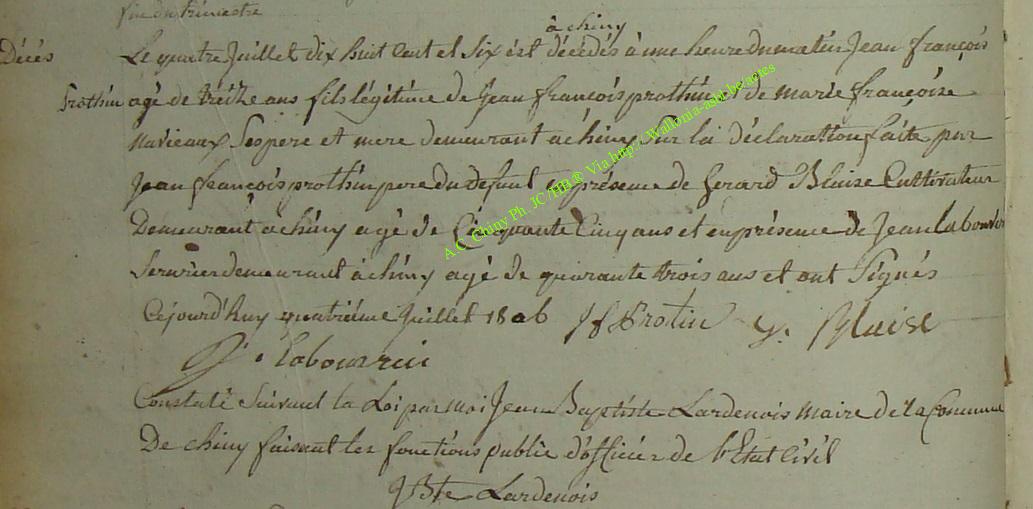 fin du trimestre
à chiny
Décés Le quatre Juillet dix huit Cent et Six est décédés à une heure du matin Jean françois
Prothin agé de treize ans fils légitime de Jean françois prothin et de marie françoise
Ses pere et mere demeurant a chiny Sur la déclaration faite par
Jean françois prothin pere du defunt en présence de Gerard Blaise Cultivateur
Demeurant a chiny agé de Cinquante Cinq ans et en présence de Jean
demeurant à chiny agé de quarante trois ans et ont Signés
Cejourd'huy quatriéme Juillet 1806 Jf Protin g. Blaise
J. labourrui
Constaté Suivant la Loi par moi Jean Baptiste Lardenois maire de la Commune
De chiny faisant les fonctions public d'officier de l'Etat Civil
JBte Lardenois
A.C. Chiny Ph. JC /HB® Via http://Wallonia-asbl.be/actes